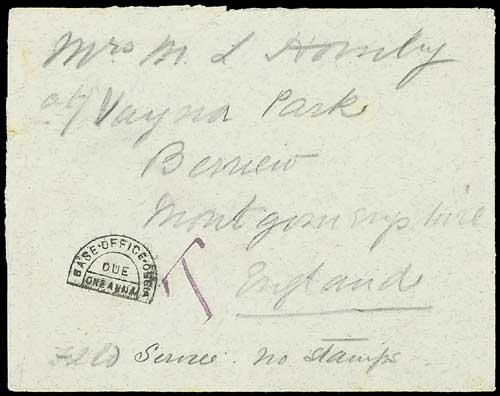 Mrs M. L Hornby
at Vayna Park
Berriew
Montgomeryshire
England
BASE·OFFICE·
DUE
ONE ANNA
T
Field Service. No stamps